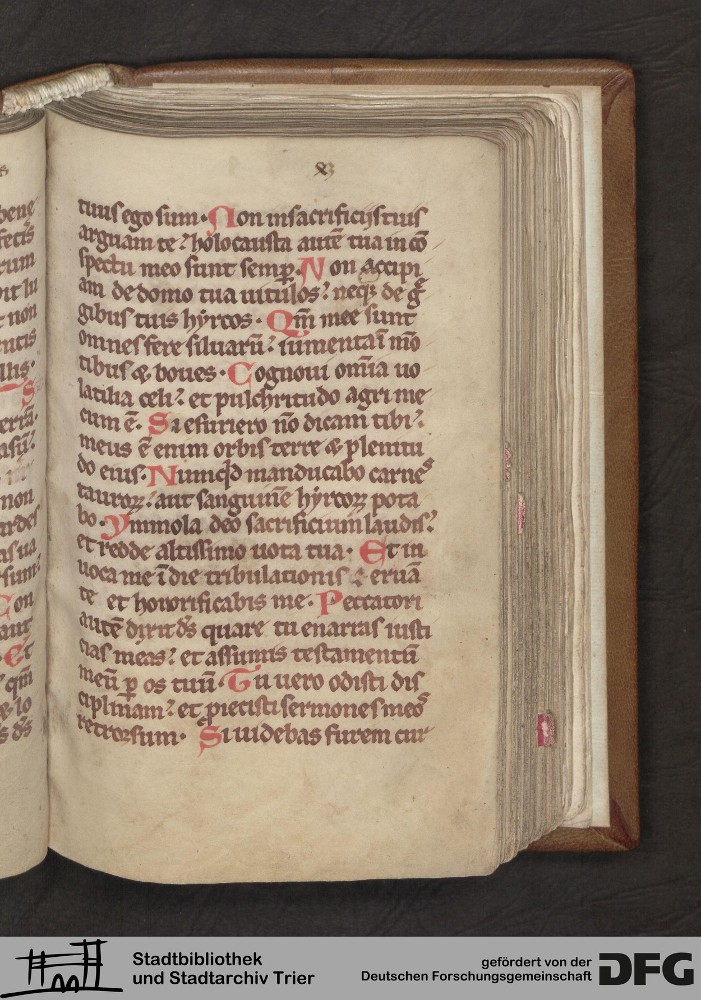 xi
tuus ego sum· Non in sacrificijs tuis
arguam te? holocausta autē tua in cō
spectu meo sunt semp̱· Non accipi
am de domo tua uitulos? neq; de g̃
gibus tuis hyrcos· Qm̄ mee sunt
omnes fere siluarū? iumenta ī mō
tibus & boues· Cognoui om̄ia uo
latilia celi? et pulchritudo agri me
cum ē· Si esuriero nō dicam tibi?
meus ē enim orbis terre & plenitu
do eius· Numqđ manducabo carnes
tauroꝝ? aut sanguinē hyrcoꝝ pota
bo· Ymmola deo sacrificium laudis?
et redde altissimo uota tua· Et in
uoca me ī die tribulationis & eruā
te et honorificabis me· Peccatori
autē dixit ds̄ quare tu enarras iusti
cias meas? et assumis testamentū
meū p̱ os tuū· Tu uero odisti dis
ciplinam? et proiecisti sermones meos
retrorsum· Si uidebas furem cur
bene
fecis
rum
it lu
non
S
non
ardes
sua
Con
aut
Et
qm̄
& lo
ds̄
Stadtbibliothek
und Stadtarchiv Trier
gefördert von der
Deutschen Forschungsgemeinschaft
DFG